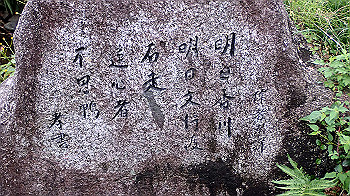 明日香川
明日文将渡
石走
遠心者
不思鴨